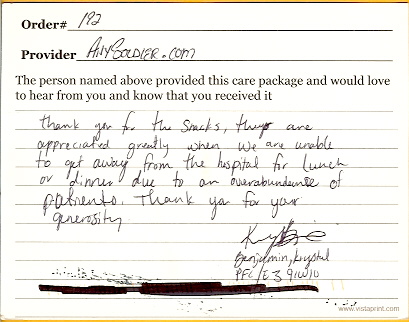 Order# 192
Provider AnySoldier.com
The person named above provided this care package and would love
to hear from you and know that you received it
Thank you for the snacks, they are
appreciated greatly when we are unable
to get away from the hospital for lunch
or dinner due to an overabundence of
patients. Thank you for your
generosity
Benjamin, Krystal
PFC/E3 91W10
www.vistaprint.com